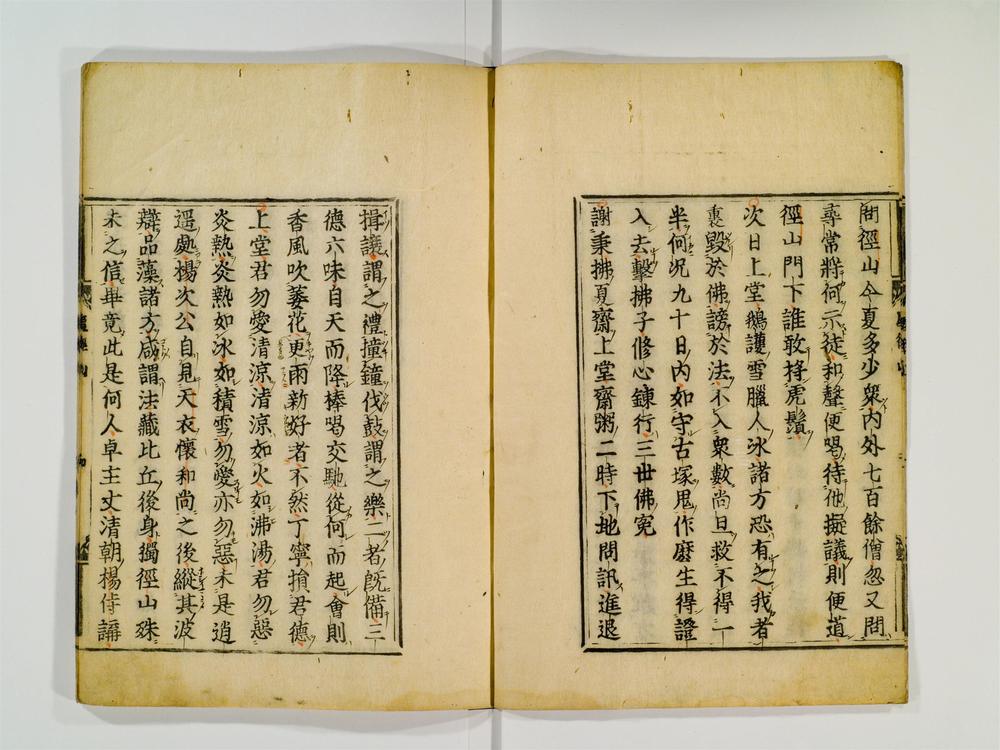 問徑山今夏多少衆内外七百餘僧忽又問
尋常將何示徒和聲便喝待他擬議則便道
徑山門下誰敢捋虎鬚
次日上堂鵝護雪臘人冰諸方恐有之我者
裏毀於佛謗於法不入衆數尚曰救不得一
半何況九十日內如守古塚鬼作麼生得證
入去擊拂子修心鍊行三世佛寃
謝秉拂夏齋上堂齋粥二時下地問訊進退
揖讓謂之禮撞鐘伐鼓謂之樂二者既備三
德六味自天而降棒喝交馳從何而起會則
香風吹萎花更雨新好者不然丁寧損君德
上堂君勿愛清涼清涼如火如沸湯君勿惡
炎熱炎熱如冰如積雪勿愛亦勿惡未是逍
遥處楊次公自見天衣懷和尚之後縱其波
辯品藻諸方咸謂法藏比丘後身獨徑山殊
未之信畢竟此是何人卓主丈清朝楊侍講